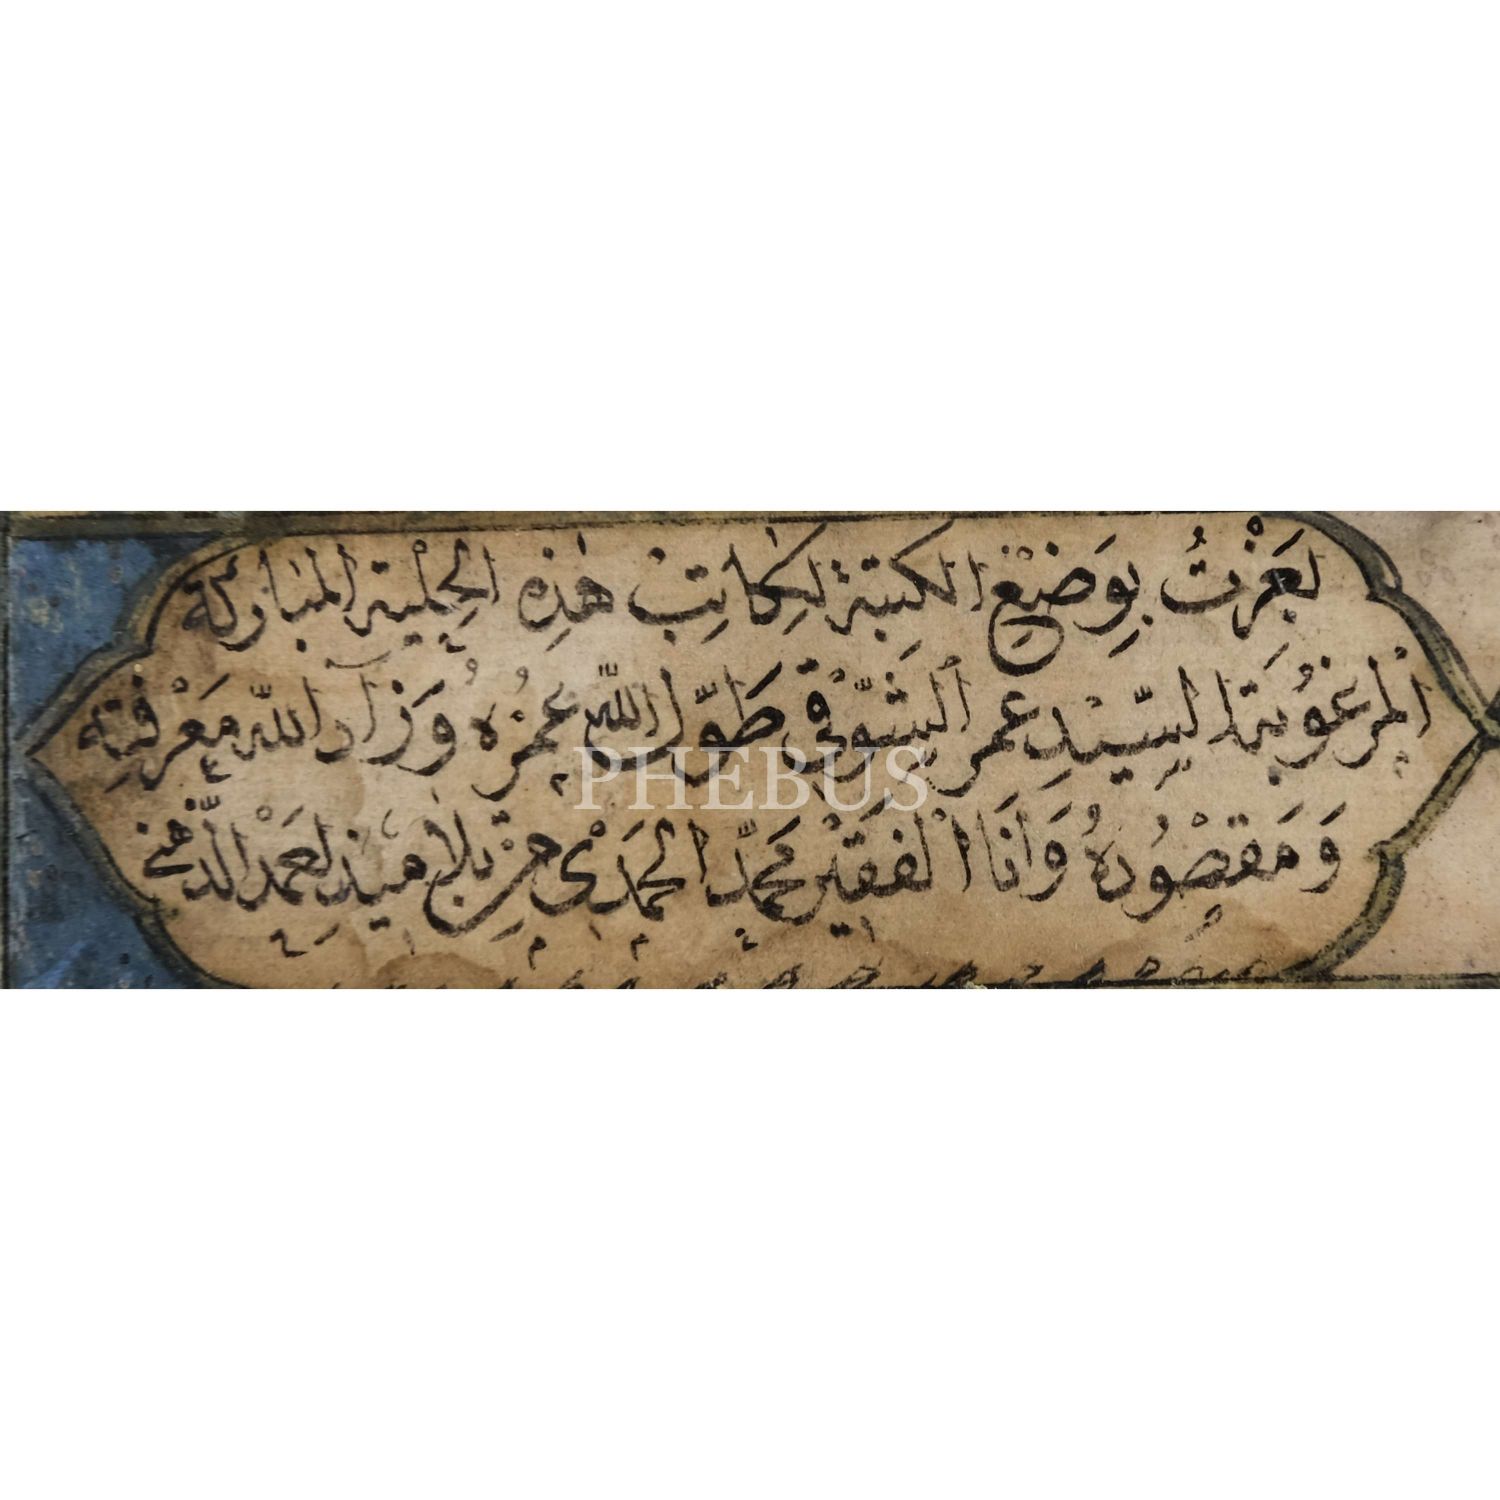 بوَضْعِ الكتبة لِكاتِبْ هٰذِهِ الحِلْية المباركة
المرغوُبَة السَّيّدِ عمر الشَّوْقي طَوَّلَ اللّٰه عُمْرُهُ وَزَادَ اللّٰه مَعْرِفتِه
وَمَقصُودُهُ وَاَنَا الْفَقيْر محمّد الحمدْي
PHEBUS